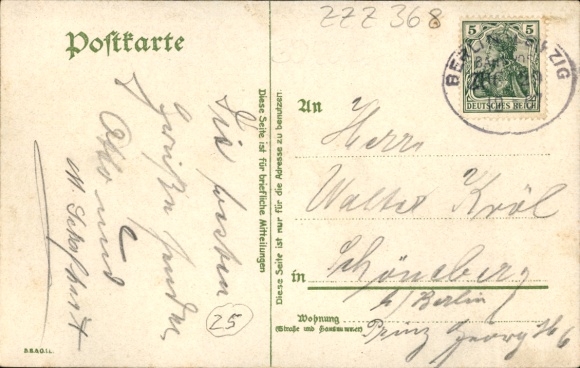 ZZZ 368
Postkarte
5 5
DEUTSCHES REICH
BERLIN
Die besten
Grüße senden
Otto und
M.
25
Diese Seite ist für briefliche Mitteilungen
Diese Seite ist nur für die Adresse zu benutzen.
An
Herrn
Walter Kröl
in Schöneberg
b/Berlin
Wohnung
(Straße und Hausnummer)
Prinz Georg Str 6
B.B.A.G.i.L.